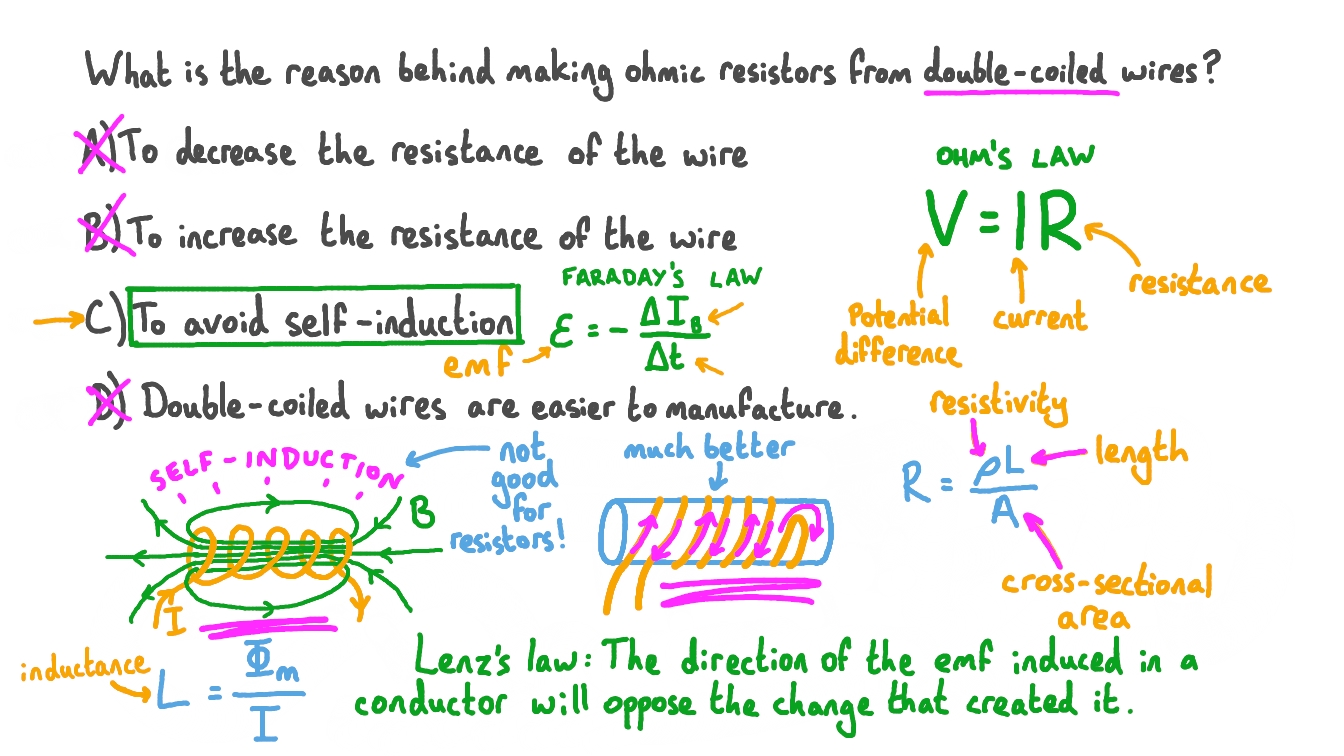 What is the reason behind making ohmic resistors from double-coiled wires?
A) To decrease the resistance of the wire
B) To increase the resistance of the wire
C) To avoid self-induction
D) Double-coiled wires are easier to manufacture.
FARADAY'S LAW
ε = - ΔI_B / Δt
emf
OHM'S LAW
V = IR
Potential
difference
current
resistance
resistivity
R = ρL / A
length
cross-sectional
area
SELF-INDUCTION
B
I
not
good
for
resistors!
much better
inductance
L = Φm / I
Lenz's law: The direction of the emf induced in a
conductor will oppose the change that created it.